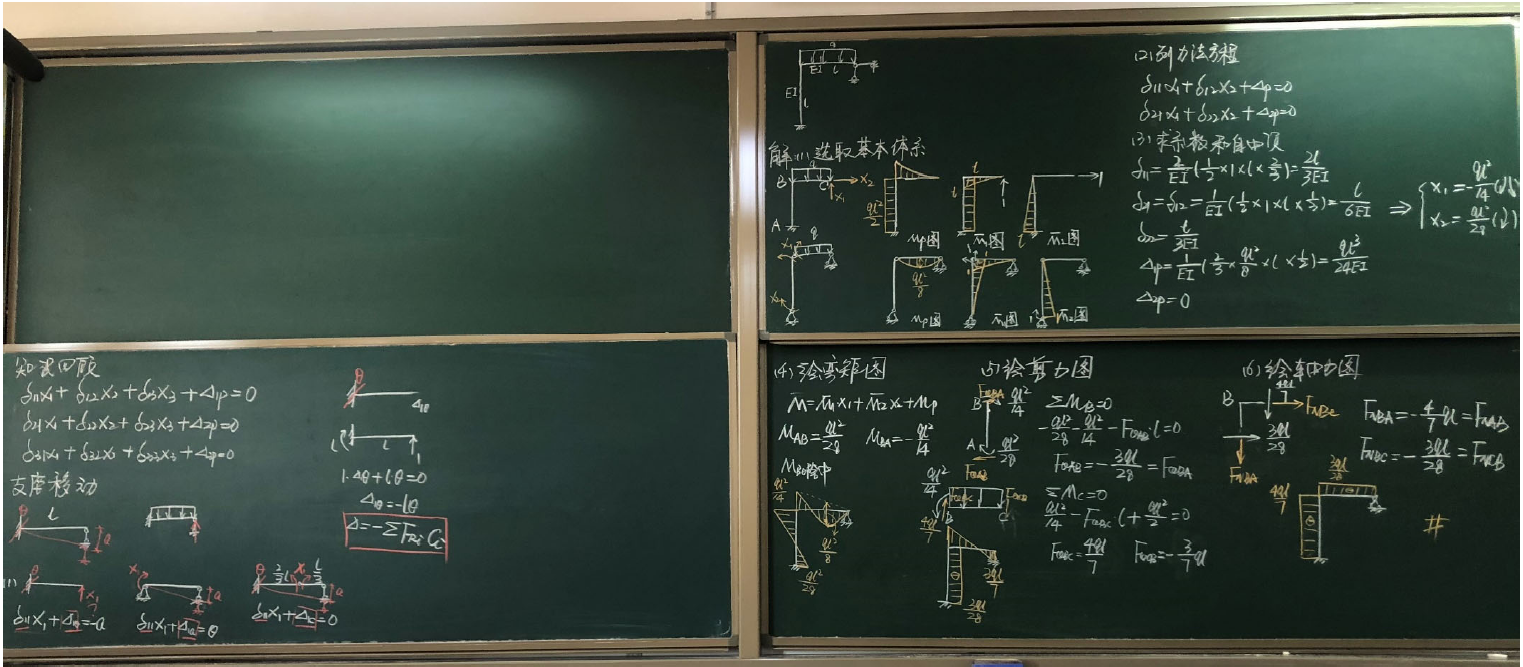 知识回顾
δ11x1+δ12x2+δ13x3+Δ1p=0
δ21x1+δ22x2+δ23x3+Δ2p=0
δ31x1+δ32x2+δ33x3+Δ3p=0
支座移动
l
a
θ
Δ1θ
l
l
1
1·Δθ+lθ=0
Δ1θ=-lθ
Δ=-ΣFRi Ci
(1)
θ
x1
a
θ
a
δ11x1+Δ1a=-a
δ11x1+Δ1a=θ
δ11x1+Δ1c=0
q
EI
l
EI
l
解(1)选取基本体系
q
B
C
x2
x1
A
ql²/2
Mp图
l
l
1
M̄1图
1
l
M̄2图
x1
q
x2
ql²/8
Mp图
M̄1图
M̄2图
(2)列力法方程
δ11x1+δ12x2+Δ1p=0
δ21x1+δ22x2+Δ2p=0
(3)求系数和自由项
δ11=2/EI(1/2×1×l×2/3)=2l/3EI
δ21=δ12=1/EI(1/2×1×l×1/3)=l/6EI
δ22=l/3EI
Δ1p=1/EI(2/3×ql²/8×l×1/2)=ql³/24EI
Δ2p=0
⇒{x1=-ql²/14
x2=ql²/28
(4)绘弯矩图
M=M̄1x1+M̄2x2+Mp
MAB=ql²/28 MBA=-ql²/14
ql²/14
ql²/8
ql²/28
(5)绘剪力图
FQBA
ql²/14
B
A
ql²/28
FQAB
ΣMB=0
-ql²/28-ql²/14-FQAB·l=0
FQAB=-3ql/28=FQBA
ql²/14
FQBC
FQCB
B
C
ΣMC=0
ql²/14-FQBC l+ql²/2=0
FQBC=4ql/7 FQCB=-3/7ql
4ql/7
3ql/7
3ql/28
(6)绘轴力图
4ql/7
B
FNBC
3ql/28
FNBA
FNBA=-4/7ql=FNAB
FNBC=-3ql/28=FNCB
3ql/28
4ql/7
#